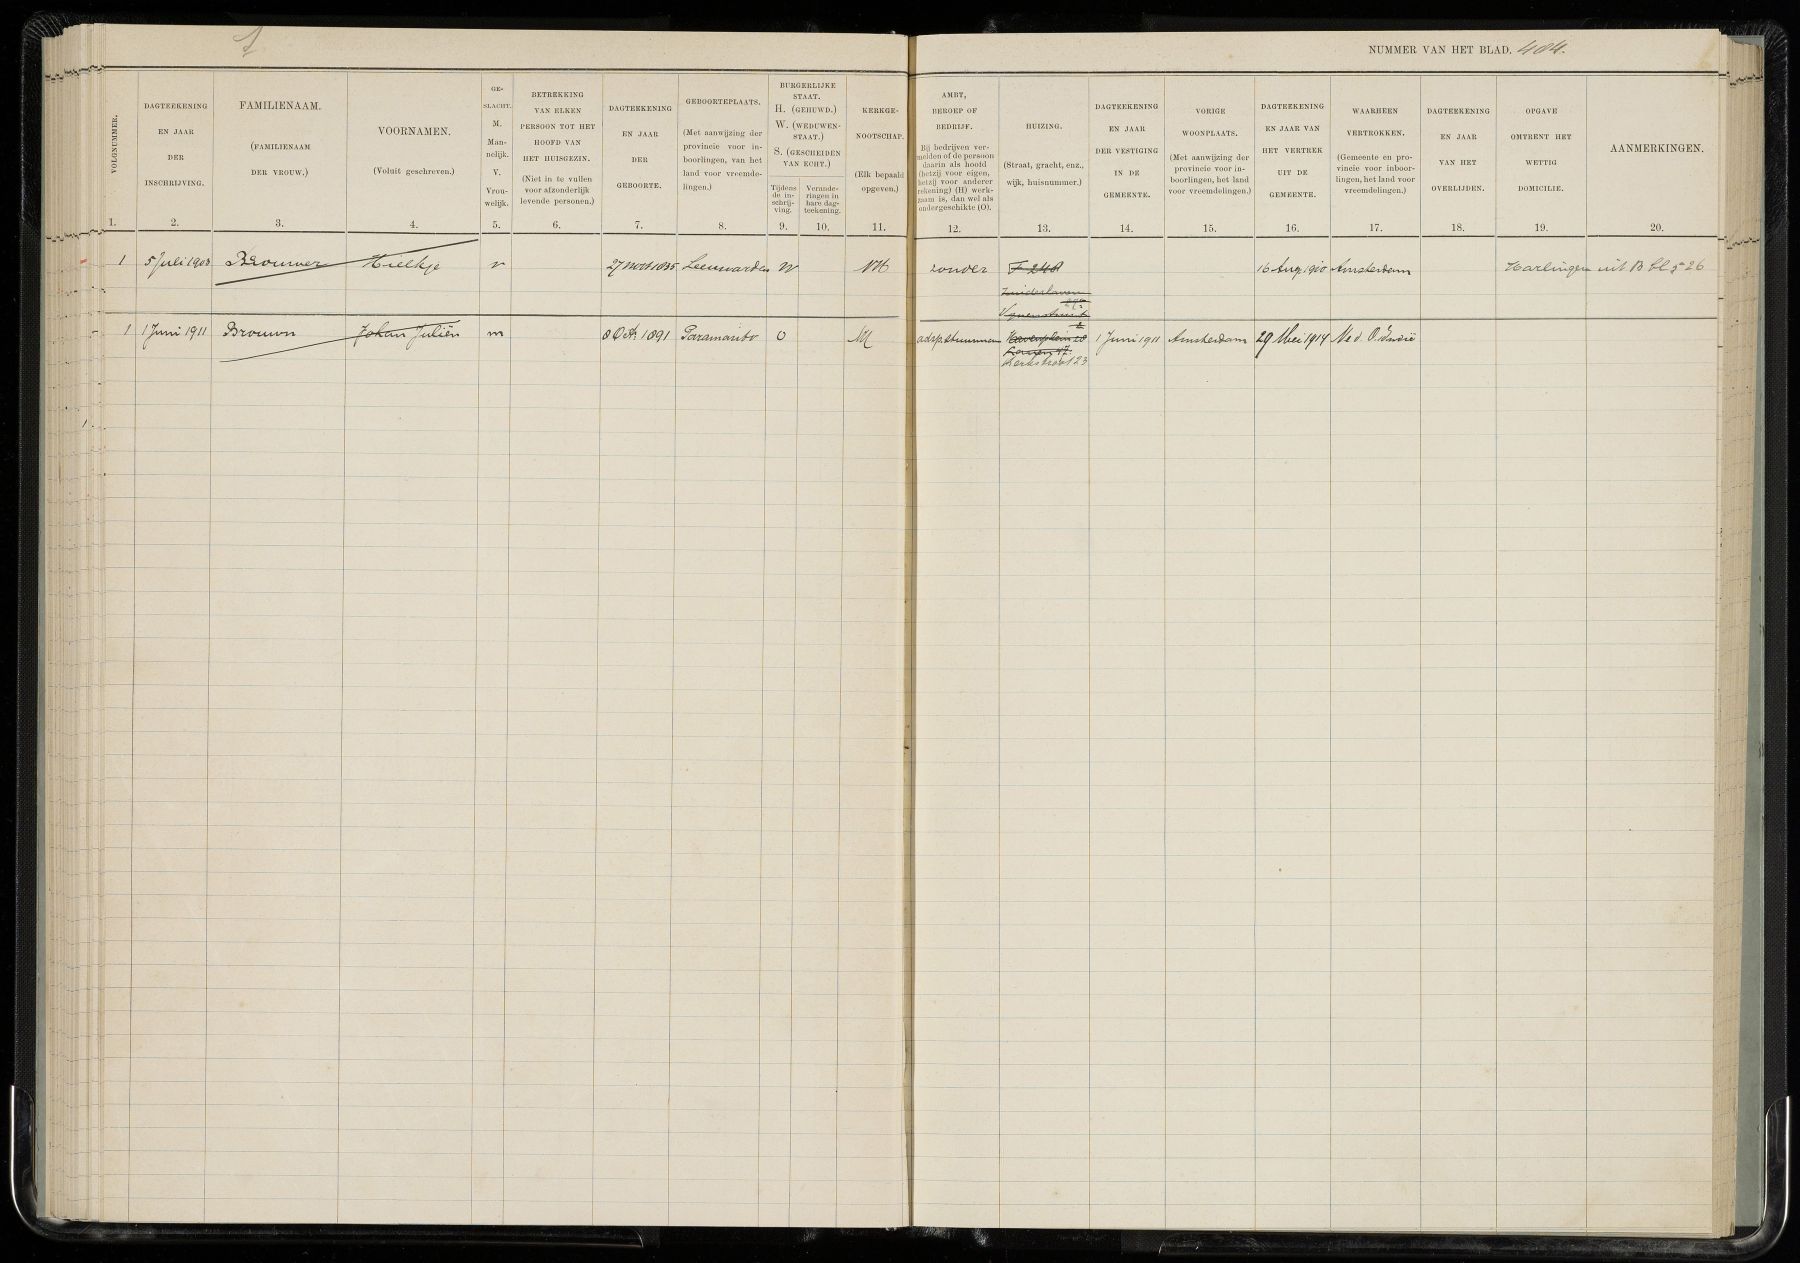 NUMMER VAN HET BLAD. 404.
VOLGNUMMER.
1.
DAGTEEKENING
EN JAAR
DER
INSCHRIJVING.
2.
FAMILIENAAM.
(FAMILIENAAM
DER VROUW.)
3.
VOORNAMEN.
(Voluit geschreven.)
4.
GE-
SLACHT.
M.
Man-
nelijk.
V.
Vrou-
welijk.
5.
BETREKKING
VAN ELKEN
PERSOON TOT HET
HOOFD VAN
HET HUISGEZIN.
(Niet in te vullen
voor afzonderlijk
levende personen.)
6.
DAGTEEKENING
EN JAAR
DER
GEBOORTE.
7.
GEBOORTEPLAATS.
(Met aanwijzing der
provincie voor in-
boorlingen, van het
land voor vreemde-
lingen.)
8.
BURGERLIJKE
STAAT.
H. (GEHUWD.)
W. (WEDUWEN-
STAAT.)
S. (GESCHEIDEN
VAN ECHT.)
Tijdens
de in-
schrij-
ving.
9.
Verande-
ringen in
hare dag-
teekening.
10.
KERKGE-
NOOTSCHAP.
(Elk bepaald
opgeven.)
11.
AMBT,
BEROEP OF
BEDRIJF.
Bij bedrijven ver-
melden of de persoon
daarin als hoofd
(hetzij voor eigen,
hetzij voor anderer
rekening) (H) werk-
zaam is, dan wel als
ondergeschikte (O).
12.
HUIZING.
(Straat, gracht, enz.,
wijk, huisnummer.)
13.
DAGTEEKENING
EN JAAR
DER VESTIGING
IN DE
GEMEENTE.
14.
VORIGE
WOONPLAATS.
(Met aanwijzing der
provincie voor in-
boorlingen, het land
voor vreemdelingen.)
15.
DAGTEEKENING
EN JAAR VAN
HET VERTREK
UIT DE
GEMEENTE.
16.
WAARHEEN
VERTROKKEN.
(Gemeente en pro-
vincie voor inboor-
lingen, het land voor
vreemdelingen.)
17.
DAGTEEKENING
EN JAAR
VAN HET
OVERLIJDEN.
18.
OPGAVE
OMTRENT HET
WETTIG
DOMICILIE.
19.
AANMERKINGEN.
20.
1 5 Juli 1903 Brouwer Hielkje v 27 Nov 1835 Leeuwarden W NH zonder F 248 16 Aug 1910 Amsterdam Harlingen uit B bl 526
Zuiderhaven
1 1 Juni 1911 Brouwn Johan Juliën m 8 Oct. 1891 Paramaribo O M adsp. stuurman Havenplein 20 1 Juni 1911 Amsterdam 29 Mei 1914 Ned. O. Indië
Kerkstraat 23